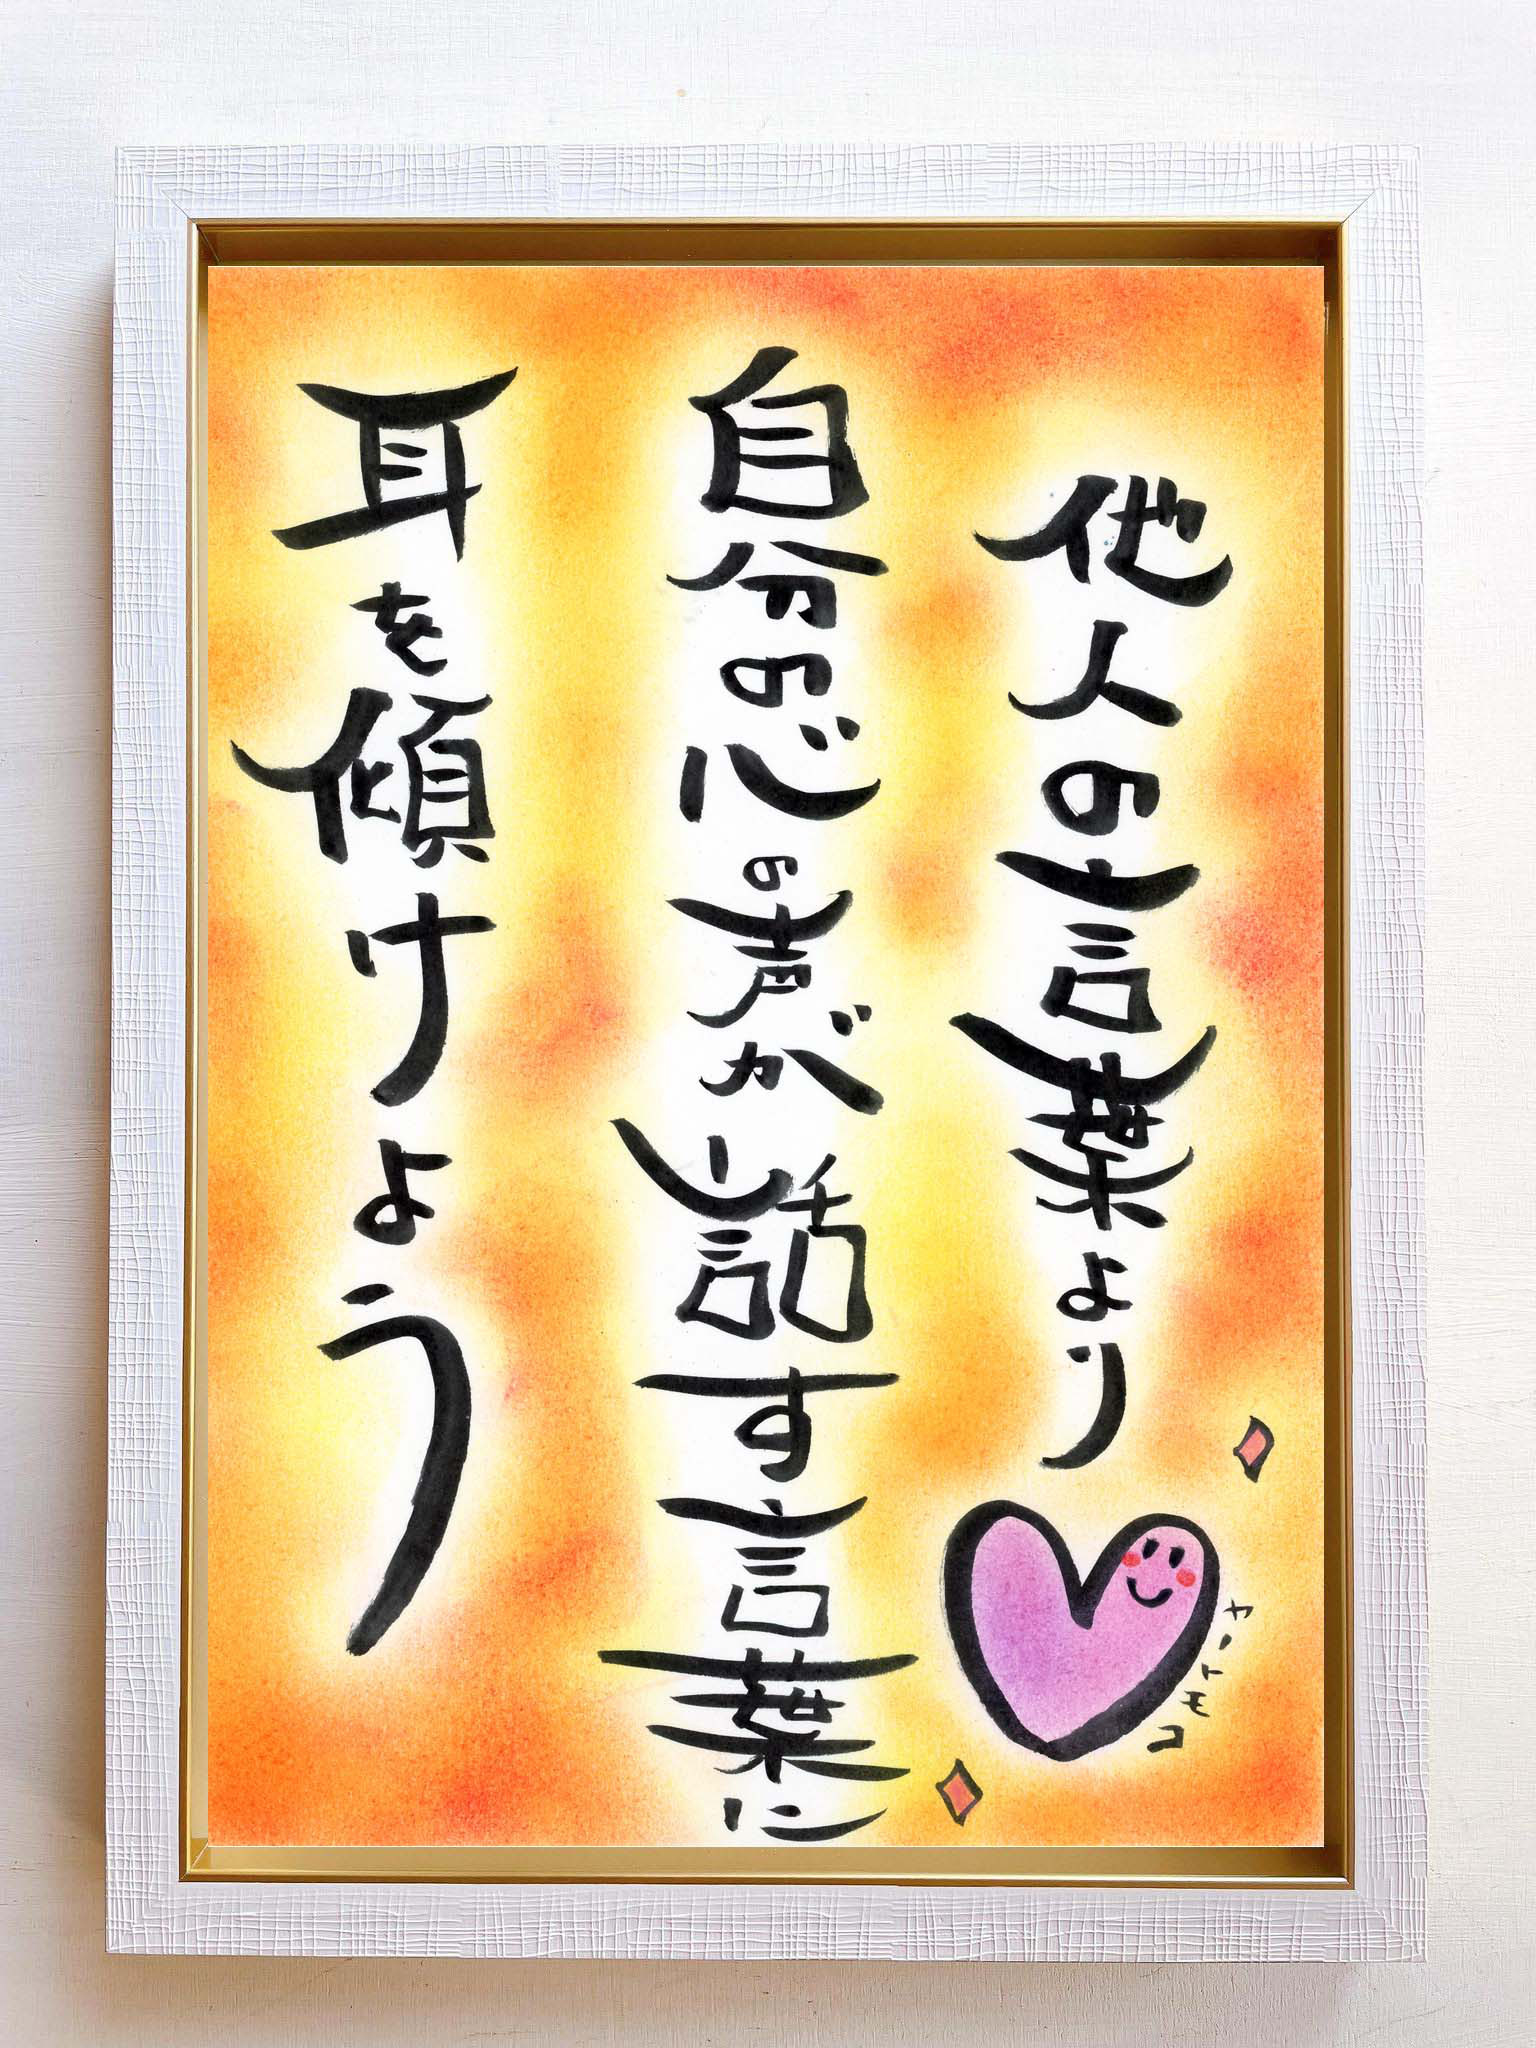 他人の言葉より
自分の心の声が話す言葉に
耳を傾けよう
カートモコ